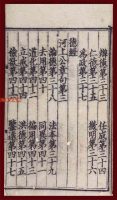 辯德第三十三 任成第三十四
仁德第三十五 微明第三十六
為政第三十七
河上公章句第三
德經
論德第三十八 法本第三十九
去用第四十 同異第四十一
道化第四十二 徧用第四十三
立戒第四十四 洪德第四十五
儉欲第四十六 鑒遠第四十七